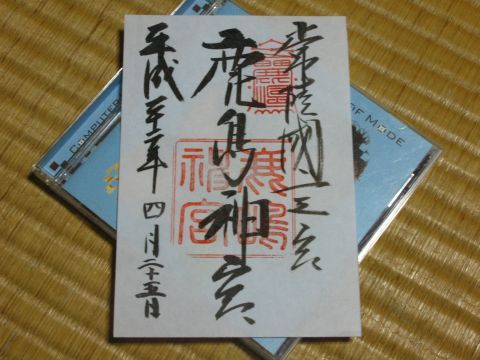 常陸國一之宮
鹿島神宮
平成二十二年四月二十五日
鹿嶋
神宮
COMPUTER
OF MODE